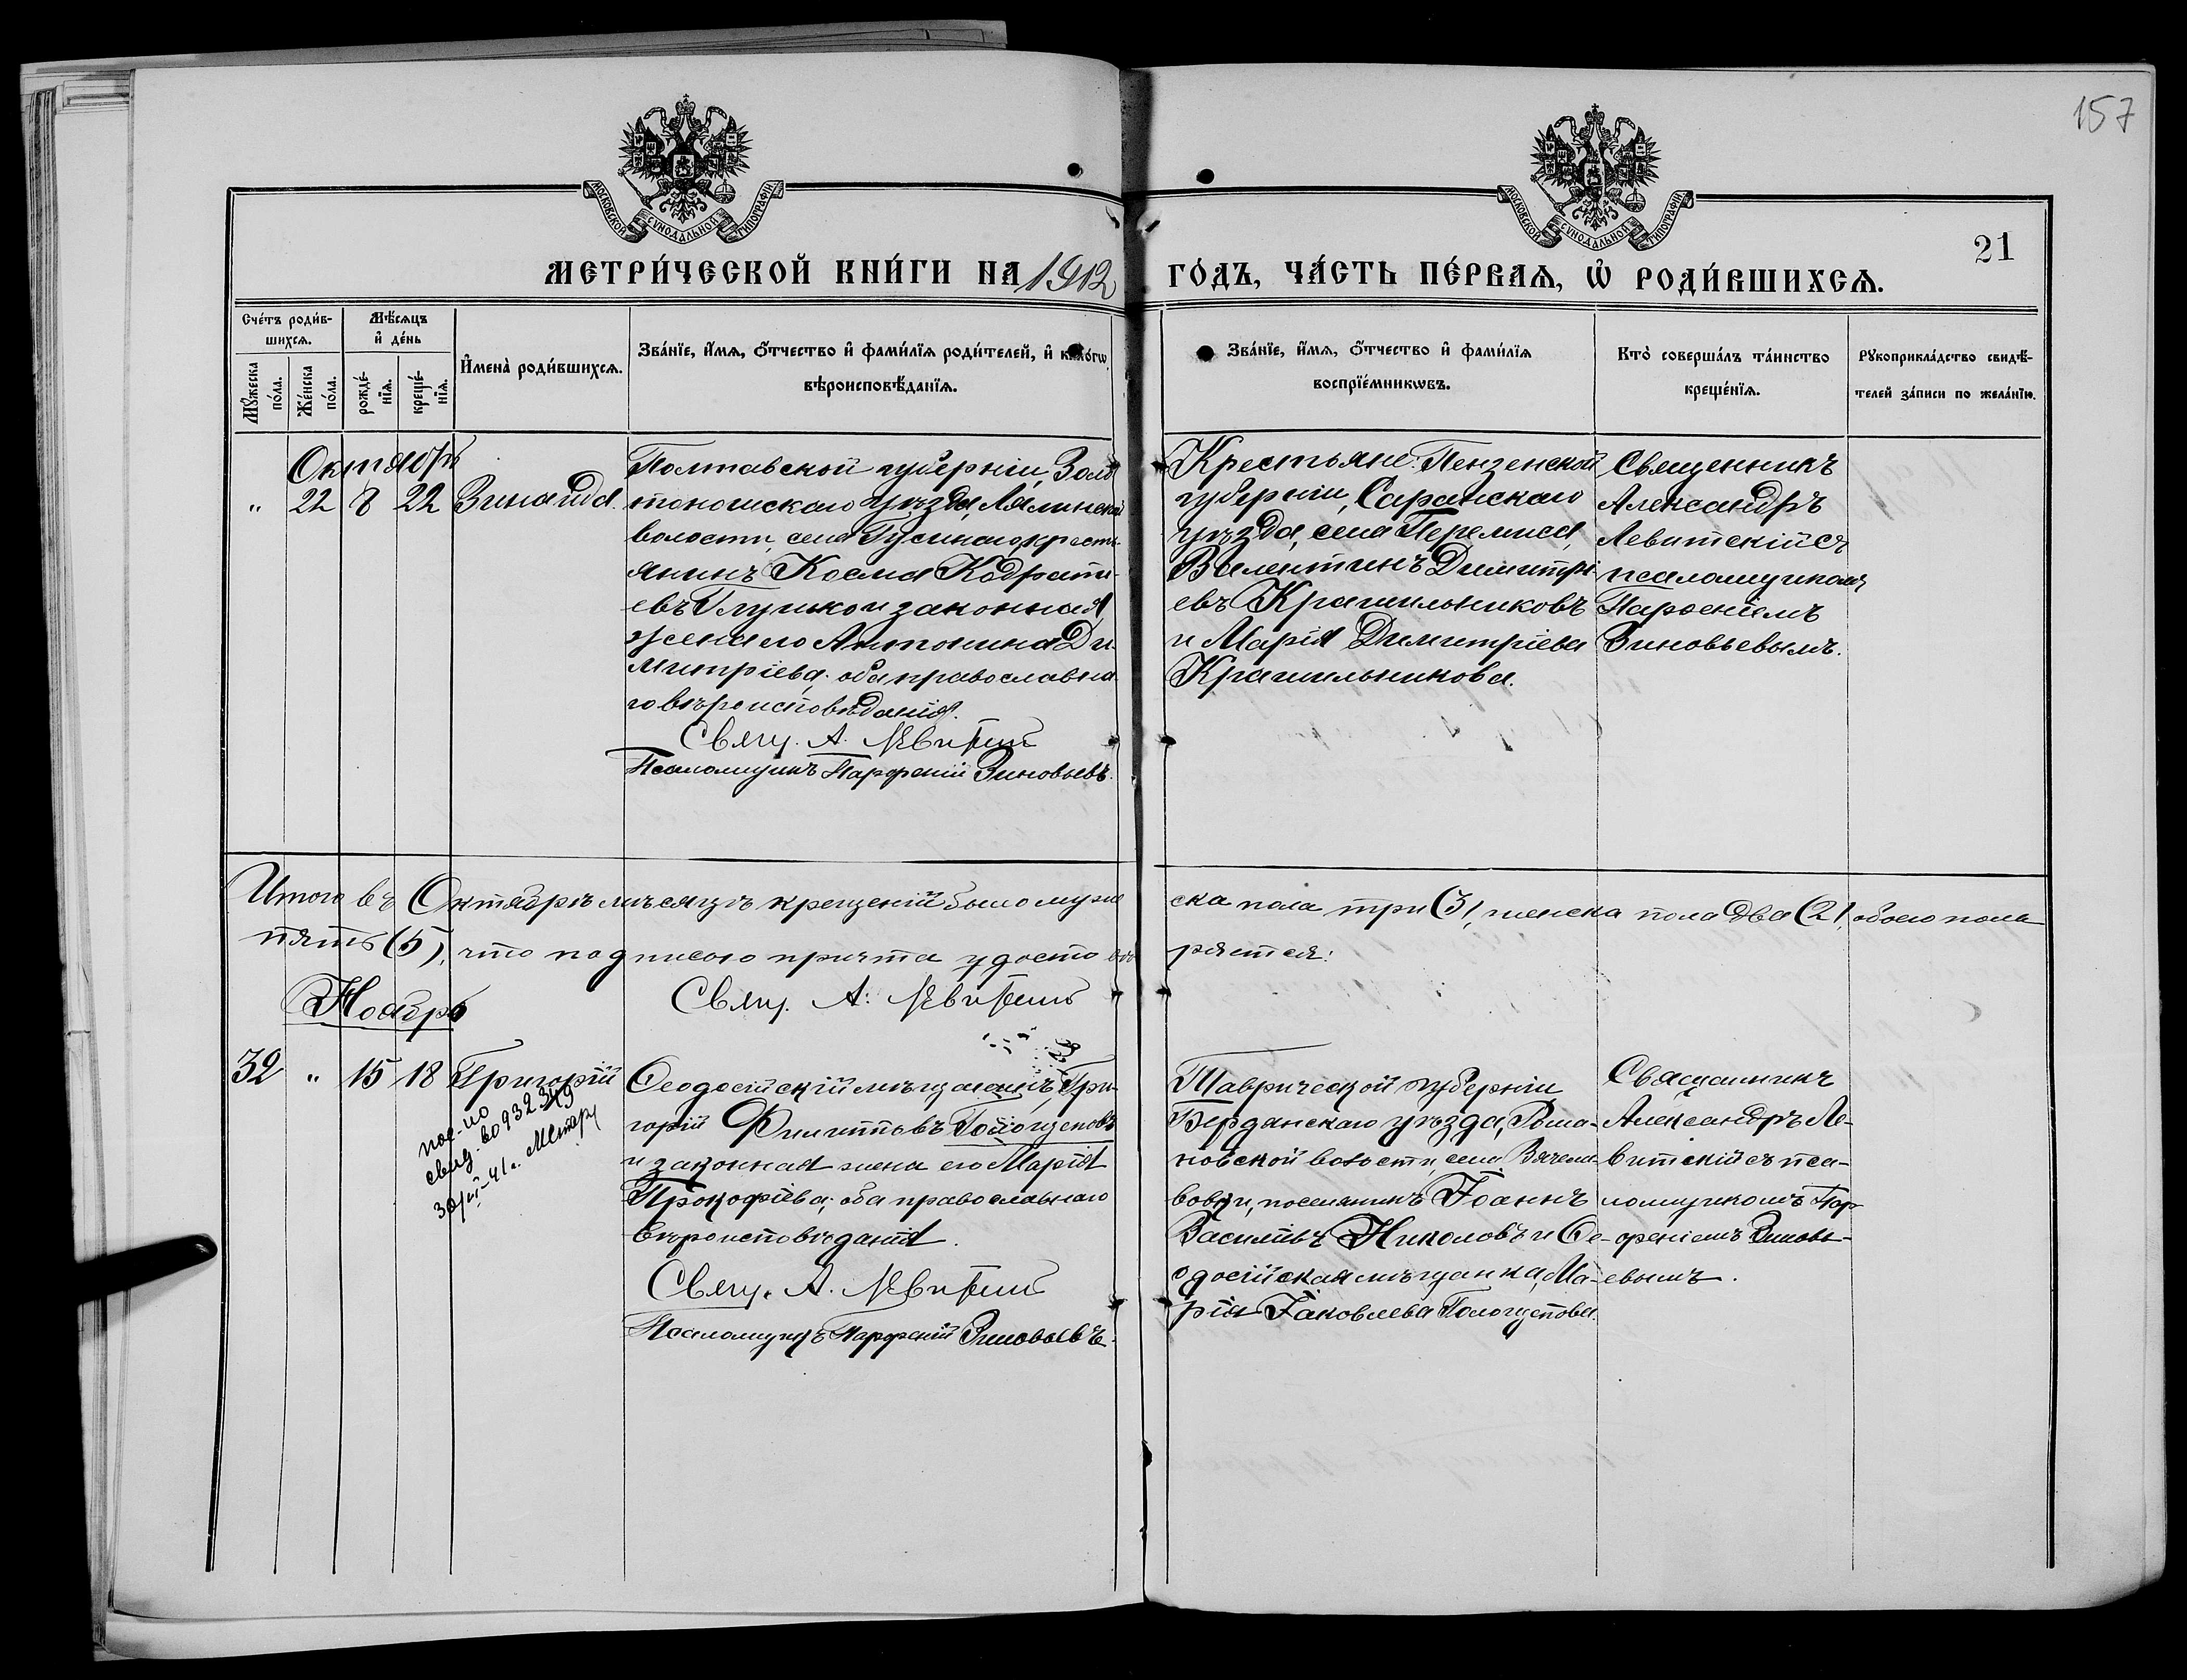 157
МОСКОВСКОЙ СѴНОДАЛЬНОЙ ТИПОГРАФІИ
МОСКОВСКОЙ СѴНОДАЛЬНОЙ ТИПОГРАФІИ
21
МЕТРИ́ЧЕСКОЙ КНИ́ГИ НА 1912 ГО́ДЪ, ЧА́СТЬ ПЕ́РВАѦ, Ѡ҆ РОДИ́ВШИХСѦ.
Сче́тъ роди́в-
шихсѧ.
Мꙋ́жеска по́ла.
Же́нска по́ла.
Мѣ́сѧцъ
и҆ де́нь
рожде́-
нїѧ.
креще́-
нїѧ.
И҆мена̀ роди́вшихсѧ.
Зва́нїе, и҆́мѧ, ѻ҆́тчество и҆ фами́лїѧ роди́телей, и҆ како́гѡ
вѣроисповѣ́данїѧ.
Зва́нїе, и҆́мѧ, ѻ҆́тчество и҆ фами́лїѧ
воспрїе́мникѡвъ.
Кто̀ соверша́лъ та́инство
креще́нїѧ.
Рꙋкоприкла́дство свидѣ́-
телей за́писи по жела́нїю.
Октябрь
" 22 8 22 Зинаида.
Полтавской губерніи, Золо
тоношскаго уѣзда, Лялинской
волости, села Гусинаго, кресть-
янинъ Косма Кодрати-
евъ Глушко и законная
жена его Антонина Ди-
митріева, оба православна
го вѣроисповѣданія.
Свящ. А. Левитскій
Псаломщикъ Парфеній Зиновьевъ.
Крестьяне: Пензенской
губерніи, Саранскаго
уѣзда, села Перемиса,
Валентинъ Димитрі-
евъ Крашильниковъ
и Марія Димитріева
Крашильникова.
Священникъ
Александръ
Левитскій съ
псаломщикомъ
Парѳеніемъ
Зиновьевымъ.
Итого въ Октябрѣ мѣсяцѣ крещеній было муже ска пола три (3), женска пола два (2), обоего пола
пять (5), что подписью причта удостовѣ ряется:
Свящ. А. Левитскій
Ноябрь
32 " 15 18 Григорій
пов-но
свид. 60932349
30/VI-41 г.
Ѳеодосійскій мѣщанинъ, Гри-
горій Филипповъ Голощеповъ
и законная жена его Марія
Прокофіева; оба православнаго
вѣроисповѣданія.
Свящ. А. Левитскій
Псаломщикъ Парфеній Зиновьевъ.
Таврической губерніи
Бердянскаго уѣзда, Рома-
новской волости, села Вячесла-
вовки, поселянинъ Іоаннъ
Васильевъ Николовъ и Ѳе-
одосійская мѣщанка, Ма-
рія Іаковлева Голощепова.
Священникъ
Александръ Ле-
витскій съ пса-
ломщикомъ Пар
феніемъ Зиновь-
евымъ.